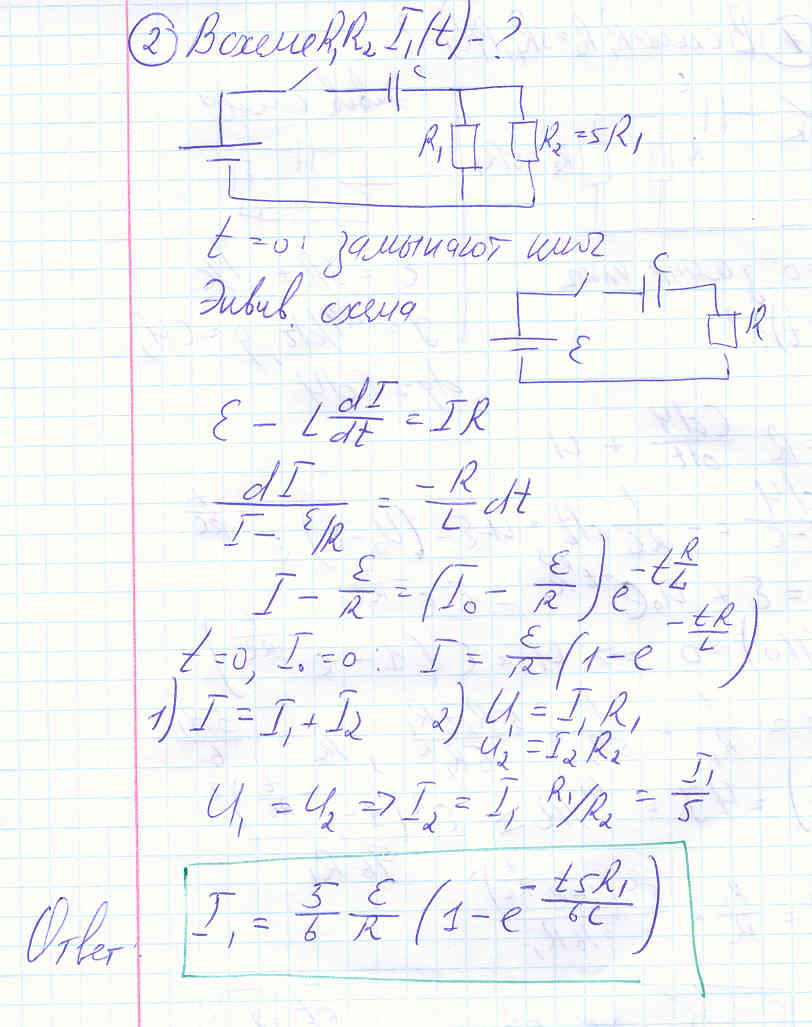 ② В схеме R₁R₂ I₁(t) - ?
C
R₁ R₂ = 5R₁
t = 0: замыкают ключ
Эквив. схема
C
ℰ R
ℰ - L dI/dt = IR
dI/(I - ℰ/R) = -R/L dt
I - ℰ/R = (I₀ - ℰ/R) e^(-t R/L)
t = 0, I₀ = 0: I = ℰ/R (1 - e^(-tR/L))
1) I = I₁ + I₂ 2) U₁ = I₁R₁
U₂ = I₂R₂
U₁ = U₂ => I₂ = I₁ R₁/R₂ = I₁/5
Ответ: I₁ = 5/6 ℰ/R (1 - e^(-t5R₁/6L))